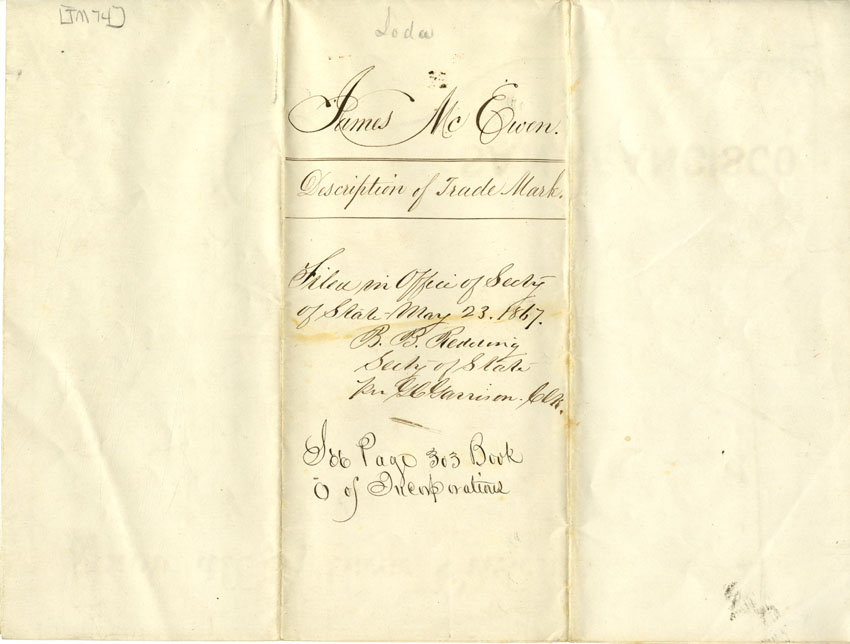 [TM 74]
Soda
James Mc Ewen.
Description of Trade Mark.
Filed in Office of Secty
of State May 23. 1867.
B. B. Redding
Secty of State
per Garrison. Clk.
See Page 303 Book
of Incorporations